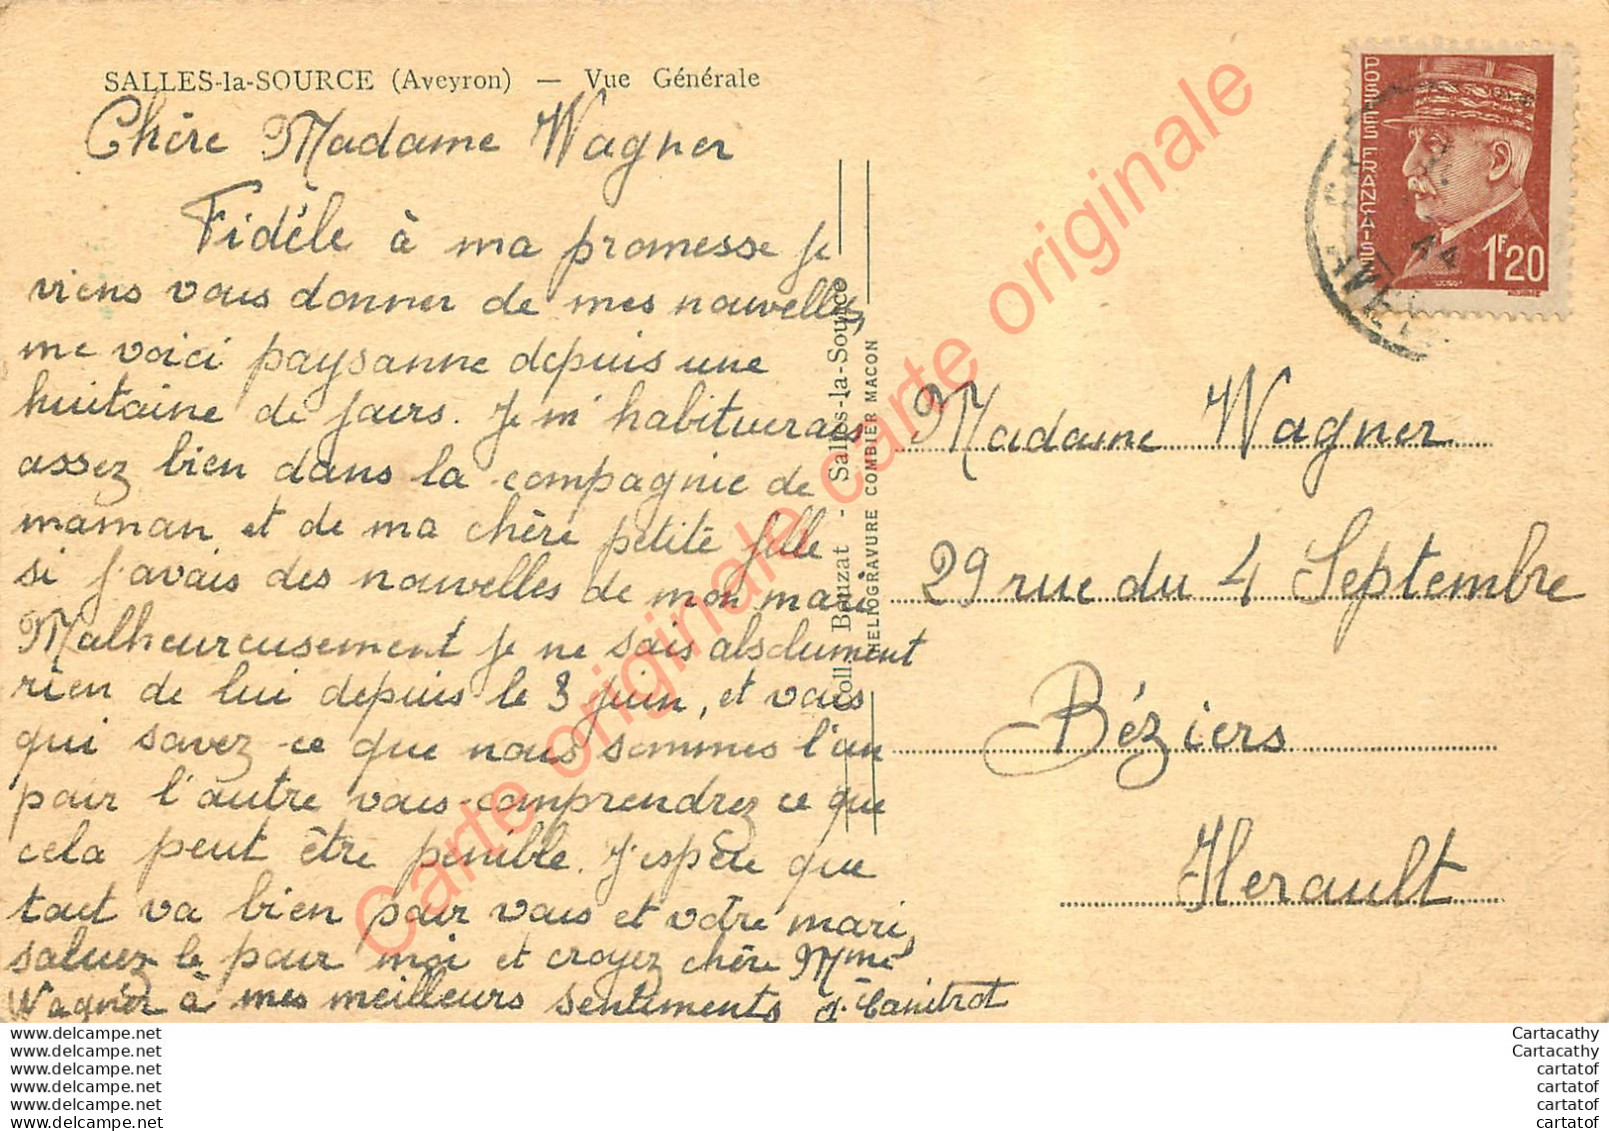 SALLES-la-SOURCE (Aveyron) — Vue Générale
Chère Madame Wagner
Fidèle à ma promesse je
viens vous donner de mes nouvelles,
me voici paysanne depuis une
huitaine de jours. Je m'habituerais
assez bien dans la compagnie de
maman et de ma chère petite fille
si j'avais des nouvelles de mon mari
Malheureusement je ne sais absolument
rien de lui depuis le 3 juin, et vous
qui savez ce que nous sommes l'un
pour l'autre vous comprendrez ce que
cela peut être penible. J'espère que
tout va bien pour vous et votre mari,
saluez le pour moi et croyez chère Mme
Wagner à mes meilleurs sentiments J. Canitrot
Coll. Bouzat - Salles-la-Source
HELIOGRAVURE COMBIER MACON
POSTES FRANÇAISES
1F20
Madame Wagner
29 rue du 4 Septembre
Béziers
Herault
Carte originale carte originale carte originale
www.delcampe.net
www.delcampe.net
www.delcampe.net
www.delcampe.net
www.delcampe.net
www.delcampe.net
Cartacathy
Cartacathy
cartatof
cartatof
cartatof
cartatof